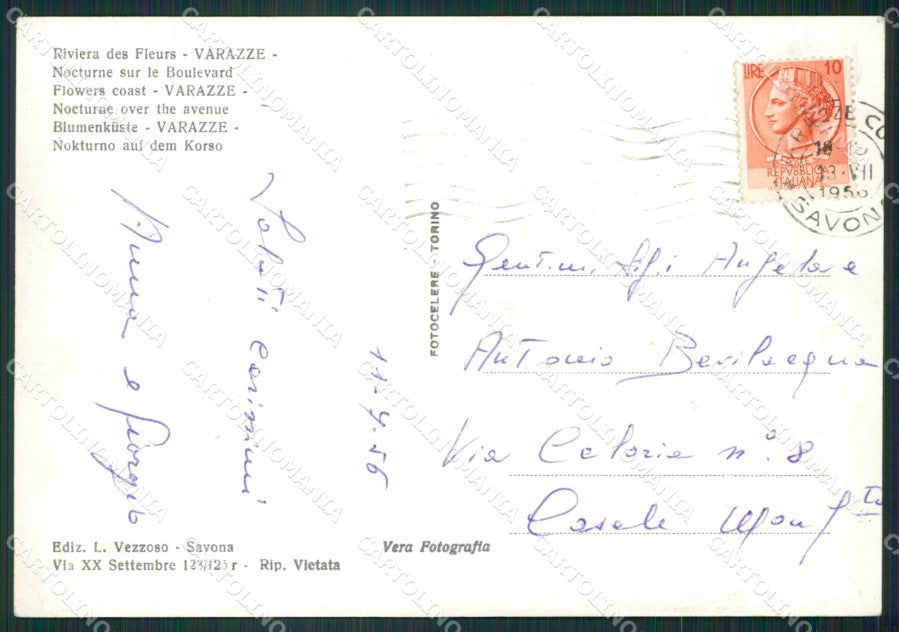 Riviera des Fleurs - VARAZZE -
Nocturne sur le Boulevard
Flowers coast - VARAZZE -
Nocturne over the avenue
Blumenküste - VARAZZE -
Nokturno auf dem Korso
LIRE 10
REPVBBLICA
ITALIANA
13·VII
1956
SAVONA
Saluti carissimi
Anna e Giorgio
FOTOCELERE - TORINO
Gentim. Sigi Angela e
Antonio Bevilacqua
Via n°. 8
Casale Monfto
Ediz. L. Vezzoso - Savona
Via XX Settembre 123/125 r - Rip. Vietata
Vera Fotografia
CARTOLINOMANIA